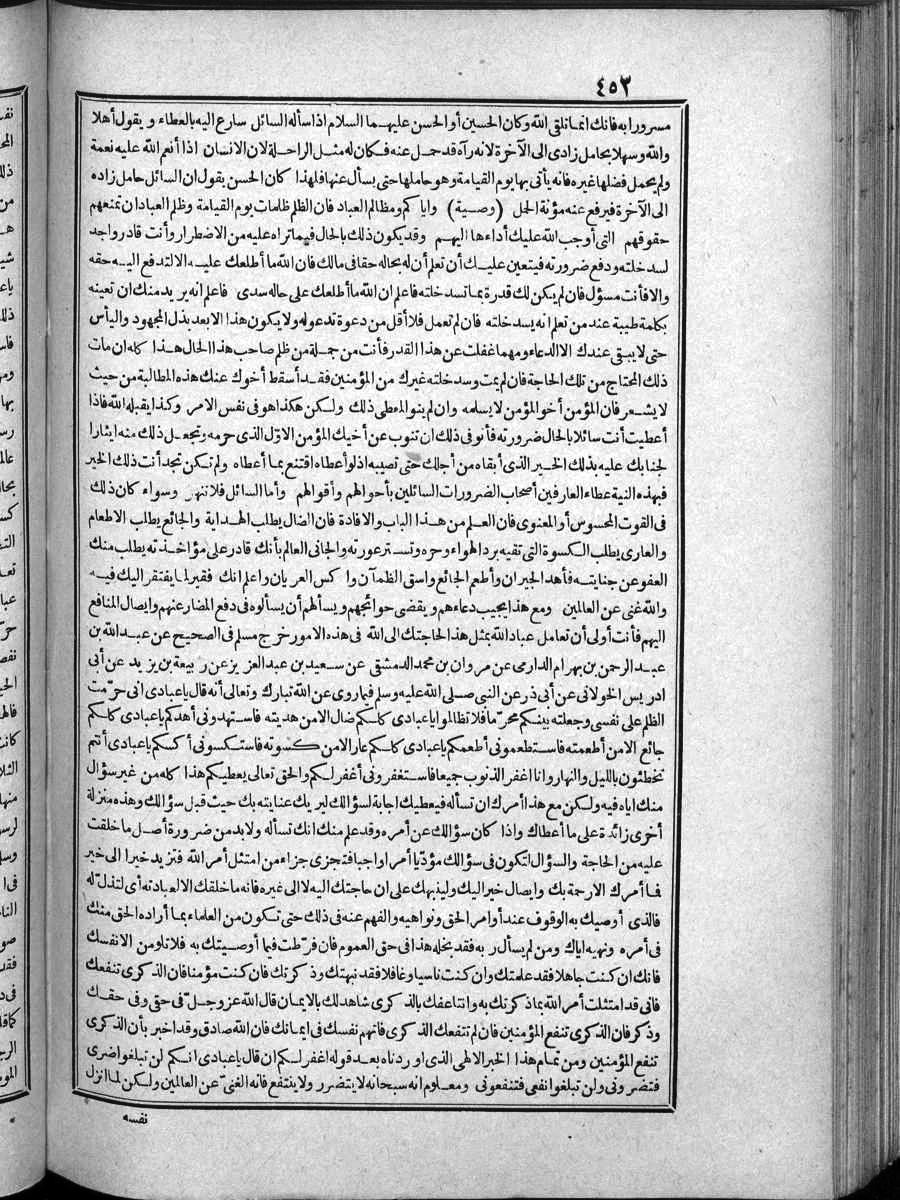 ٤٥٣
مسرورا به فانك انما تلقى الله وكان الحسين أو الحسن عليهما السلام اذا سأله السائل سارع اليه بالعطاء ويقول أهلا
والله وسهلا بحامل زادى الى الآخرة لانه رآه قد حمل عنه فكان له مثل الراحلة لان الانسان اذا أنعم الله عليه نعمة
ولم يحمل فضلها غيره فانه يأتى بها يوم القيامة وهو حاملها حتى يسأل عنها فلهذا كان الحسن يقول ان السائل حامل زاده
الى الآخرة فيرفع عنه مؤنة الحمل (وصية) واياكم ومظالم العباد فان الظلم ظلمات يوم القيامة وظلم العباد ان تمنعهم
حقوقهم التى أوجب الله عليك أداءها اليهم وقد يكون ذلك بالحال فيما تراه عليه من الاضطرار وأنت قادر واجد
لسد خلته ودفع ضرورته فيتعين عليك أن تعلم أن له بحاله حقا فى مالك فان الله ما أطلعك عليه الا لتدفع اليه حقه
والا فأنت مسؤل فان لم يكن لك قدرة بما تسد خلته فاعلم ان الله ما أطلعك على حاله سدى فاعلم انه يريد منك ان تعينه
بكلمة طيبة عند من تعلم انه يسد خلته فان لم تعمل فلا أقل من دعوة تدعوله ولا يكون هذا الا بعد بذل المجهود واليأس
حتى لا يبقى عندك الا الدعاء ومهما غفلت عن هذا القدر فأنت من جملة من ظلم صاحب هذا الحال هذا كله ان مات
ذلك المحتاج من تلك الحاجة فان لم يمت وسد خلته غيرك من المؤمنين فقد أسقط أخوك عنك هذه المطالبة من حيث
لا يشعر فان المؤمن أخو المؤمن لا يسلمه وان لم ينو المعطى ذلك ولكن هكذا هو فى نفس الامر وكذا يقبله الله فاذا
أعطيت أنت سائلا بالحال ضرورته فأنو فى ذلك ان تنوب عن أخيك المؤمن الاول الذى حرمه وتجعل ذلك منه ايثارا
لجنابك عليه بذلك الخير الذى أبقاه من أجلك حتى تصيبه اذ لو أعطاه اقتنع بما أعطاه ولم تكن تجد أنت ذلك الخير
فبهذه النية عطاء العارفين أصحاب الضرورات السائلين بأحوالهم وأقوالهم وأما السائل فلا تنهر وسواء كان ذلك
فى القوت المحسوس أو المعنوى فان العلم من هذا الباب والافادة فان الضال يطلب الهداية والجائع يطلب الاطعام
والعارى يطلب الكسوة التى تقيه برد الهواء وحره وتستر عورته والجانى العالم بأنك قادر على مؤاخذته يطلب منك
العفو عن جنايته فأهد الحيران وأطعم الجائع واسق الظمآن واكس العريان واعلم انك فقير لما يفتقر اليك فيه
والله غنى عن العالمين ومع هذا يجيب دعاءهم ويقضى حوائجهم ويسألهم أن يسألوه فى دفع المضار عنهم وايصال المنافع
اليهم فأنت أولى أن تعامل عباد الله بمثل هذا لحاجتك الى الله فى هذه الامور خرج مسلم فى الصحيح عن عبد الله بن
عبد الرحمن بن بهرام الدارمى عن مروان بن محمد الدمشقى عن سعيد بن عبد العزيز عن ربيعة بن يزيد عن أبى
ادريس الخولانى عن أبى ذر عن النبى صلى الله عليه وسلم فيما روى عن الله تبارك وتعالى أنه قال يا عبادى انى حرمت
الظلم على نفسى وجعلته بينكم محرما فلا تظالموا يا عبادى كلكم ضال الا من هديته فاستهدونى أهدكم يا عبادى كلكم
جائع الا من أطعمته فاستطعمونى أطعمكم يا عبادى كلكم عار الا من كسوته فاستكسونى أكسكم يا عبادى أنتم
تخطئون بالليل والنهار وانا اغفر الذنوب جميعا فاستغفرونى أغفر لكم والحق تعالى يعطيكم هذا كله من غير سؤال
منك اياه فيه ولكن مع هذا أمرك ان تسأله فيعطيك اجابة لسؤالك ليريك عنايته بك حيث قبل سؤالك وهذه منزلة
أخرى زائدة على ما أعطاك واذا كان سؤالك عن أمره وقد علم منك انك تسأله ولا بد من ضرورة أصل ما خلقت
عليه من الحاجة والسؤال لتكون فى سؤالك مؤديا أمرا واجبا فتجزى جزاء من امتثل أمر الله فتزيد خيرا الى خير
فما أمرك الا رحمة بك وايصال خير اليك ولينبهك على ان حاجتك اليه لا الى غيره فانه ما خلقك الا لعبادته أى لتذل له
فالذى أوصيك به الوقوف عند أوامر الحق ونواهيه والفهم عنه فى ذلك حتى تكون من العلماء بما أراده الحق منك
فى أمره ونهيه اياك ومن لم يسأل ربه فقد بخله هذا فى حق العموم فان فرطت فيما أوصيتك به فلا تلومن الا نفسك
فانك ان كنت جاهلا فقد علمتك وان كنت ناسيا وغافلا فقد نبهتك وذكرتك فان كنت مؤمنا فان الذكرى تنفعك
فانى قد امتثلت أمر الله بما ذكرتك به وانتفاعك بالذكرى شاهد لك بالايمان قال الله عز وجل فى حقى وفى حقك
وذكر فان الذكرى تنفع المؤمنين فان لم تنفعك الذكرى فاتهم نفسك فى ايمانك فان الله صادق وقد اخبر بأن الذكرى
تنفع المؤمنين ومن تمام هذا الخبر الالهى الذى اوردناه بعد قوله اغفر لكم ان قال يا عبادى انكم لن تبلغوا ضرى
فتضرونى ولن تبلغوا نفعى فتنفعونى ومعلوم انه سبحانه لا يتضرر ولا ينتفع فانه الغنى عن العالمين ولكن لما انزل
نفسه